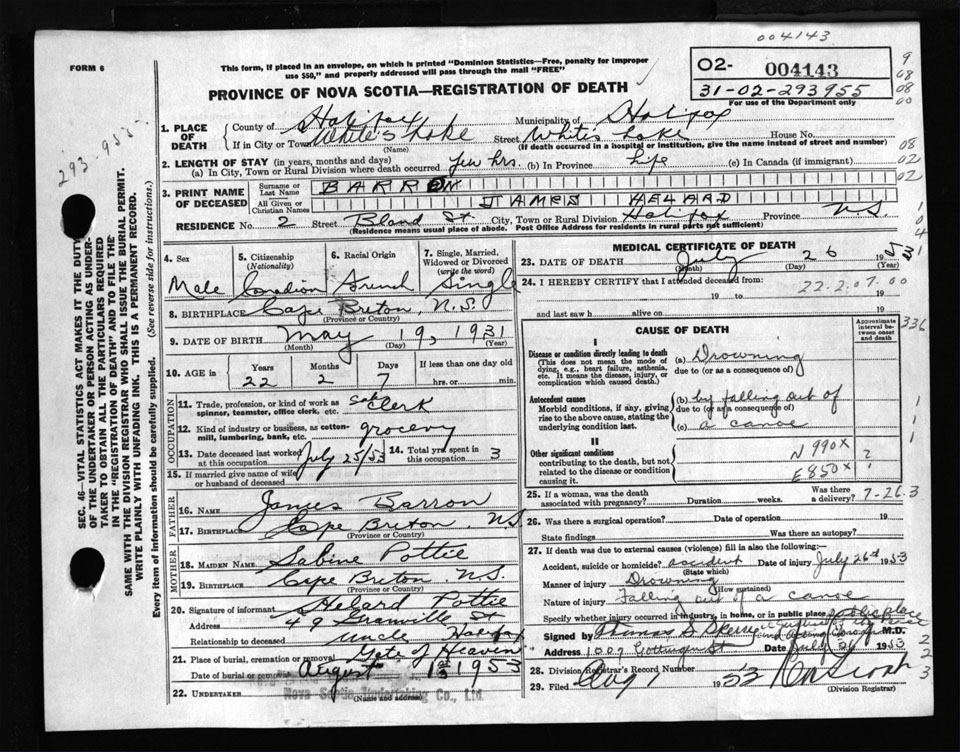 004143
FORM 6
This form, if placed in an envelope, on which is printed "Dominion Statistics—Free, penalty for improper
use $50," and properly addressed will pass through the mail "FREE"
O2- 004143
31-02-293955
For use of the Department only
9
08
08
00
08
02
02
PROVINCE OF NOVA SCOTIA—REGISTRATION OF DEATH
293.955
SEC. 46—VITAL STATISTICS ACT MAKES IT THE DUTY
OF THE UNDERTAKER OR PERSON ACTING AS UNDER-
TAKER TO OBTAIN ALL THE PARTICULARS REQUIRED
IN THE "REGISTRATION OF DEATH" AND TO FILE THE
SAME WITH THE DIVISION REGISTRAR WHO SHALL ISSUE THE BURIAL PERMIT.
WRITE PLAINLY WITH UNFADING INK. THIS IS A PERMANENT RECORD.
Every item of information should be carefully supplied. (See reverse side for instructions.)
1. PLACE OF DEATH
County of Halifax Municipality of Halifax
If in City or Town White's Lake Street White's Lake House No.
(Name) (If death occurred in a hospital or institution, give the name instead of street and number)
2. LENGTH OF STAY (in years, months and days)
(a) In City, Town or Rural Division where death occurred few hrs. (b) In Province Life (c) In Canada (if immigrant)
3. PRINT NAME OF DECEASED
Surname or Last Name BARRON
All Given or Christian Names JAMES HELARD
RESIDENCE No. 2 Street Bland St City, Town or Rural Division Halifax Province N.S.
(Residence means usual place of abode. Post Office Address for residents in rural parts not sufficient)
4. Sex Male
5. Citizenship (Nationality) Canadian
6. Racial Origin French
7. Single, Married, Widowed or Divorced (write the word) Single
8. BIRTHPLACE Cape Breton, N.S.
(Province or Country)
9. DATE OF BIRTH May 19, 1931
(Month) (Day) (Year)
10. AGE in Years Months Days If less than one day old
22 2 7 hrs. or min.
OCCUPATION
11. Trade, profession, or kind of work as
spinner, teamster, office clerk, etc. Clerk
12. Kind of industry or business, as cotton-
mill, lumbering, bank, etc. grocery
13. Date deceased last worked at this occupation July 25/53 14. Total yrs spent in this occupation 3
15. If married give name of wife
or husband of deceased
FATHER
16. NAME James Barron
17. BIRTHPLACE Cape Breton, N.S
(Province or Country)
MOTHER
18. MAIDEN NAME Sabine Pottie
19. BIRTHPLACE Cape Breton N.S.
(Province or Country)
20. Signature of informant Helard Pottie
Address 49 Granville St
Relationship to deceased Uncle Halifax
21. Place of burial, cremation or removal Gate of Heaven
Date of burial or removal August 1st 1953
22. UNDERTAKER Nova Scotia Undertaking Co., Ltd.
(Name and address)
MEDICAL CERTIFICATE OF DEATH
23. DATE OF DEATH July 26 19
(Month) (Day) (Year)
24. I HEREBY CERTIFY that I attended deceased from:
22.2.07.00
19 to 19
and last saw h alive on 19
CAUSE OF DEATH
Approximate interval between onset and death
336
I
Disease or condition directly leading to death
(This does not mean the mode of
dying, e.g., heart failure, asthenia,
etc. It means the disease, injury, or
complication which caused death.)
(a) Drowning
due to (or as a consequence of)
Antecedent causes
Morbid conditions, if any, giving
rise to the above cause, stating the
underlying condition last.
(b) by falling out of
due to (or as a consequence of)
(c) a canoe
II
Other significant conditions
contributing to the death, but not
related to the disease or condition
causing it.
N 990X 2
E 850X 1
25. If a woman, was the death
associated with pregnancy? Duration weeks. Was there a delivery?
7-26.3
26. Was there a surgical operation? Date of operation 19
State findings Was there an autopsy?
27. If death was due to external causes (violence) fill in also the following:—
Accident, suicide or homicide? accident Date of injury July 26th 1953
(State which)
Manner of injury Drowning
(How sustained)
Nature of injury Falling out of a canoe
Specify whether injury occurred in industry, in home, or in public place public place
Signed by Thomas B M.D.
Address 1007 Gottingen St Date July 26 1953
28. Division Registrar's Record Number
29. Filed Aug 1 1953
(Division Registrar)